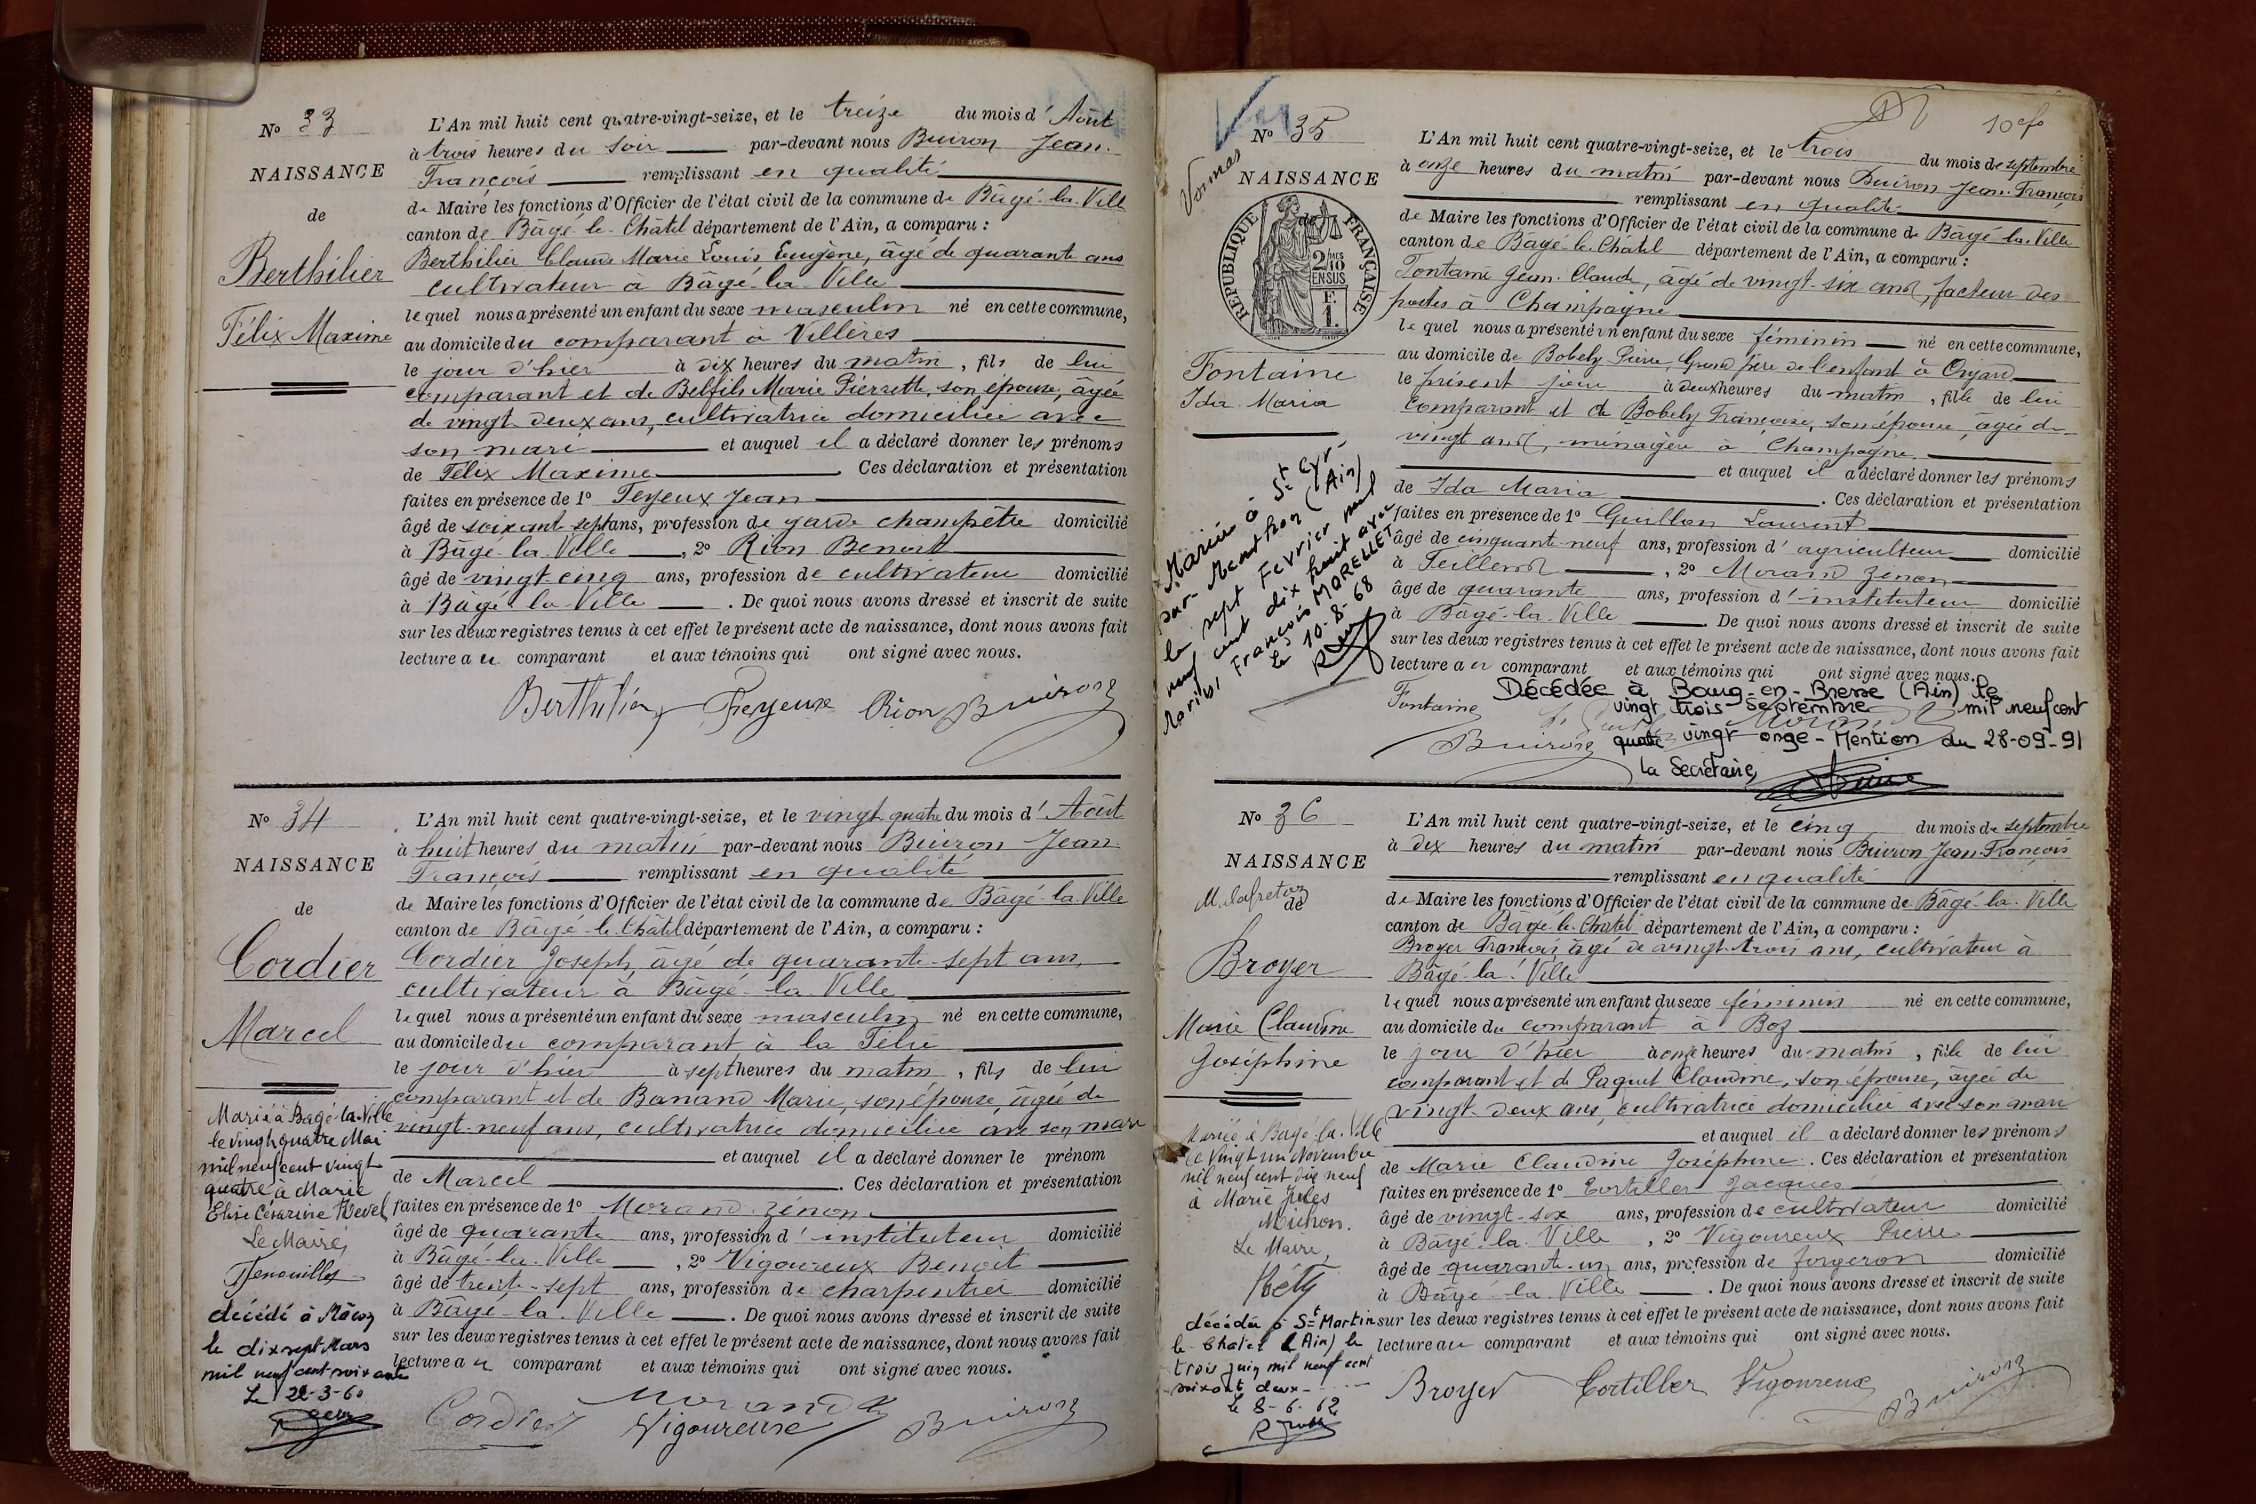 N° 33
NAISSANCE
de
Berthilier
Félix Maxime
L'An mil huit cent quatre-vingt-seize, et le treize du mois d'Août
à trois heures du soir par-devant nous Buiron Jean
François remplissant en qualité
de Maire les fonctions d'Officier de l'état civil de la commune de Bâgé-la-Ville
canton de Bâgé-le-Châtel département de l'Ain, a comparu :
Berthilier Claude Marie Louis Eugène, âgé de quarante ans
cultivateur à Bâgé-la-Ville
lequel nous a présenté un enfant du sexe masculin né en cette commune,
au domicile du comparant à Villères
le jour d'hier à dix heures du matin, fils de lui
comparant et de Belfils Marie Pierrette, son épouse, âgée
de vingt deux ans, cultivatrice domiciliée avec
son mari et auquel il a déclaré donner les prénoms
de Félix Maxime . Ces déclaration et présentation
faites en présence de 1° Feyeux Jean
âgé de soixante-sept ans, profession de garde champêtre domicilié
à Bâgé-la-Ville , 2° Rion Benoit
âgé de vingt-cinq ans, profession de cultivateur domicilié
à Bâgé-la-Ville . De quoi nous avons dressé et inscrit de suite
sur les deux registres tenus à cet effet le présent acte de naissance, dont nous avons fait
lecture au comparant et aux témoins qui ont signé avec nous.
Berthilier Feyeux Rion Buiron
N° 34
NAISSANCE
de
Cordier
Marcel
Marié à Bagé-la-Ville
le vingt quatre Mai
mil neuf cent vingt
quatre à Marie
Elise Césarine Revel
Le Maire,
décédé à Mâcon
le dix sept Mars
mil neuf cent soixante
Le 22-3-60
L'An mil huit cent quatre-vingt-seize, et le vingt quatre du mois d'Août
à huit heures du matin par-devant nous Buiron Jean
François remplissant en qualité
de Maire les fonctions d'Officier de l'état civil de la commune de Bâgé-la-Ville
canton de Bâgé-le-Châtel département de l'Ain, a comparu :
Cordier Joseph, âgé de quarante-sept ans,
cultivateur à Bâgé-la-Ville
lequel nous a présenté un enfant du sexe masculin né en cette commune,
au domicile du comparant à la Félie
le jour d'hier à sept heures du matin, fils de lui
comparant et de Banand Marie, son épouse, âgée de
vingt-neuf ans, cultivatrice domiciliée avec son mari
et auquel il a déclaré donner le prénom
de Marcel . Ces déclaration et présentation
faites en présence de 1° Morand Zénon
âgé de quarante ans, profession d'instituteur domicilié
à Bâgé-la-Ville , 2° Vigoureux Benoît
âgé de trente-sept ans, profession de charpentier domicilié
à Bâgé-la-Ville . De quoi nous avons dressé et inscrit de suite
sur les deux registres tenus à cet effet le présent acte de naissance, dont nous avons fait
lecture au comparant et aux témoins qui ont signé avec nous.
Cordier Morand Z
Vigoureux Buiron
10e fo
N° 35
Vonnas
NAISSANCE
de
REPUBLIQUE FRANÇAISE
2/10
EN SUS
F.
1.
Fontaine
Ida Maria
Mariée à St Cyr-
sur-Menthon (Ain)
le sept Fevrier mil
neuf cent dix huit avec
Marius François MORELLET
Le 10-8-68
L'An mil huit cent quatre-vingt-seize, et le trois du mois de septembre
à onze heures du matin par-devant nous Buiron Jean-François
remplissant en qualité
de Maire les fonctions d'Officier de l'état civil de la commune de Bâgé-la-Ville
canton de Bâgé-le-Chatel département de l'Ain, a comparu :
Fontaine Jean-Claude, âgé de vingt-six ans, facteur des
postes à Champagne
lequel nous a présenté un enfant du sexe féminin né en cette commune,
au domicile de Bobely Pierre, Grand père de l'enfant à Ongard
le présent jour à deux heures du matin, fille de lui
comparant et de Bobely Françoise, son épouse, âgée de
vingt ans, ménagère à Champagne
et auquel il a déclaré donner les prénoms
de Ida Maria . Ces déclaration et présentation
faites en présence de 1° Guillon Laurent
âgé de cinquante-neuf ans, profession d'agriculteur domicilié
à Feillens , 2° Morand Zénon
âgé de quarante ans, profession d'instituteur domicilié
à Bâgé-la-Ville . De quoi nous avons dressé et inscrit de suite
sur les deux registres tenus à cet effet le présent acte de naissance, dont nous avons fait
lecture au comparant et aux témoins qui ont signé avec nous.
Décédée à Bourg-en-Bresse (Ain) le
Fontaine vingt trois Septembre mil neuf cent
Buiron quatre vingt onze - Mention du 28-09-91
La Secrétaire,
N° 36
NAISSANCE
de
Broyer
Marie Claudine
Joséphine
Mariée à Bagé-la-Ville
le Vingt un Novembre
mil neuf cent dix neuf
à Marie Jules
Michon.
Le Maire,
décédée à St Martin
le Chatel (Ain) le
trois juin mil neuf cent
soixante deux
Le 8-6-62
L'An mil huit cent quatre-vingt-seize, et le cinq du mois de septembre
à dix heures du matin par-devant nous Buiron Jean-François
remplissant en qualité
de Maire les fonctions d'Officier de l'état civil de la commune de Bâgé-la-Ville
canton de Bâgé-le-Châtel département de l'Ain, a comparu :
Broyer François, âgé de vingt-trois ans, cultivateur à
Bâgé-la-Ville
lequel nous a présenté un enfant du sexe féminin né en cette commune,
au domicile du comparant à Boz
le jour d'hier à onze heures du matin, fille de lui
comparant et de Paquet Claudine, son épouse, âgée de
vingt-deux ans, cultivatrice domiciliée avec son mari
et auquel il a déclaré donner les prénoms
de Marie Claudine Joséphine . Ces déclaration et présentation
faites en présence de 1° Cortiller Jacques
âgé de vingt-six ans, profession de cultivateur domicilié
à Bâgé-la-Ville , 2° Vigoureux Pierre
âgé de quarante-un ans, profession de forgeron domicilié
à Bâgé-la-Ville . De quoi nous avons dressé et inscrit de suite
sur les deux registres tenus à cet effet le présent acte de naissance, dont nous avons fait
lecture au comparant et aux témoins qui ont signé avec nous.
Broyer Cortiller Vigoureux Buiron